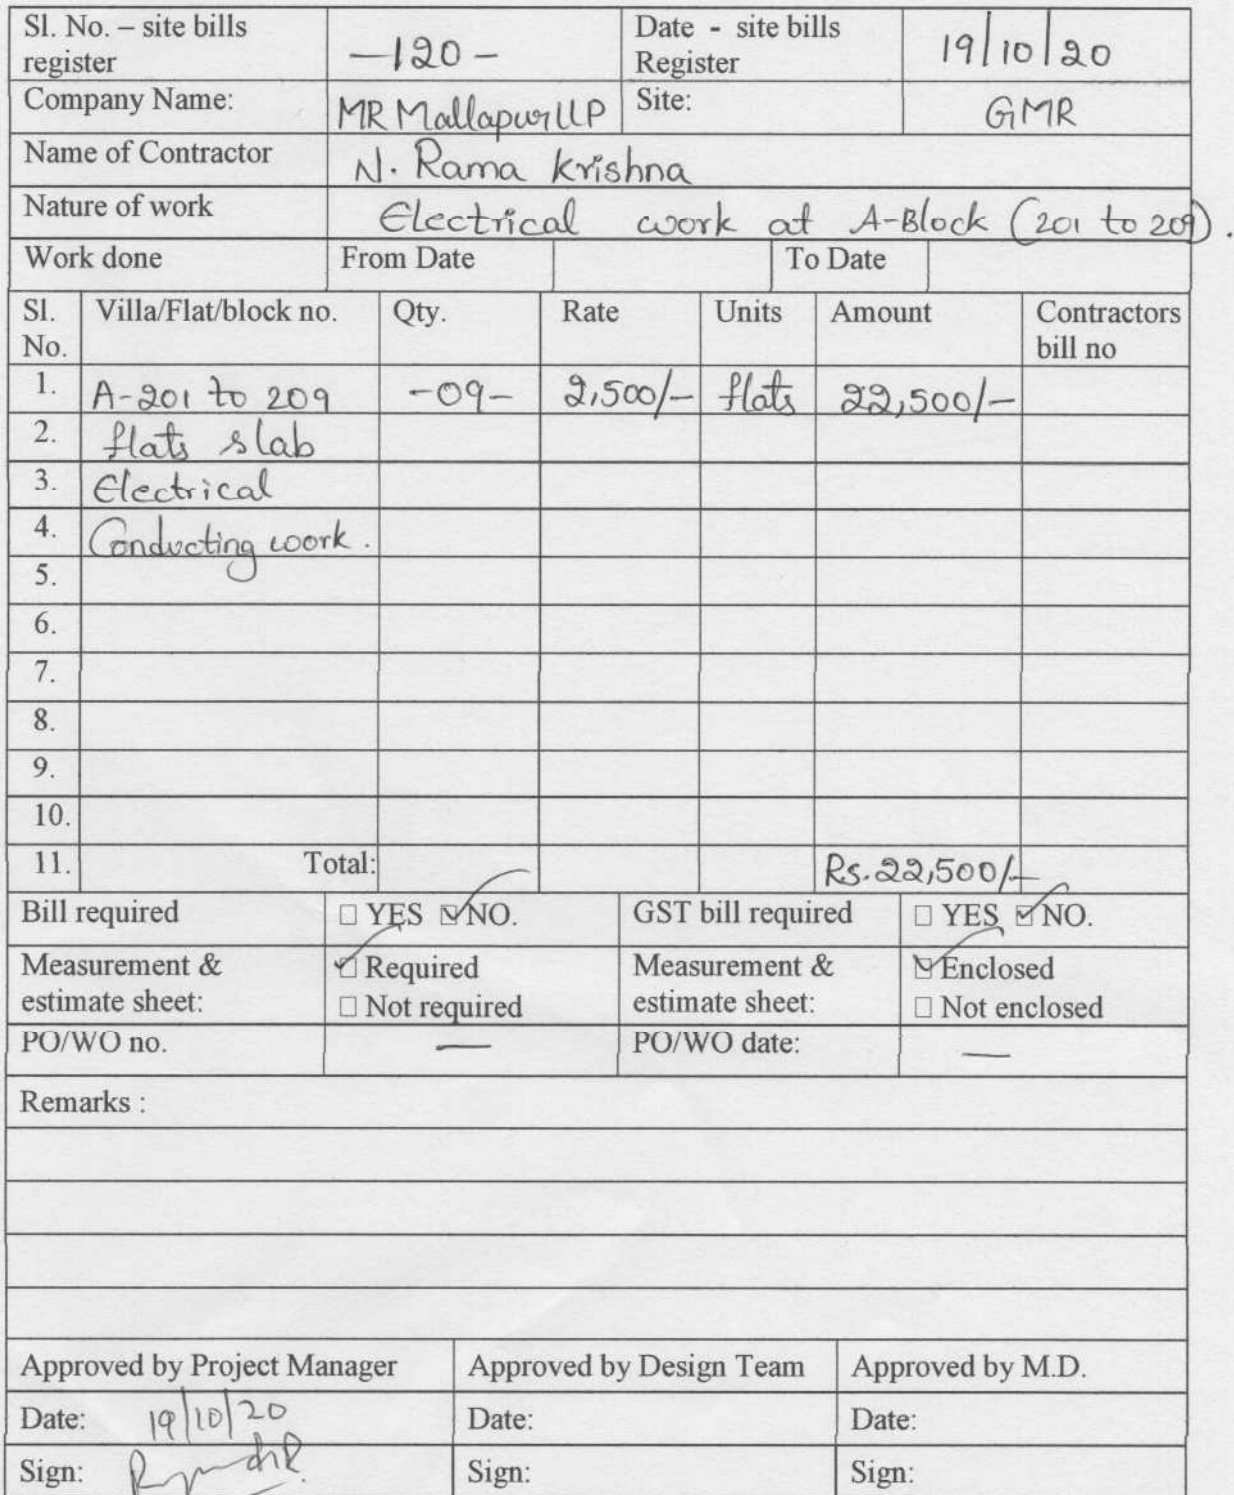 Sl. No. – site bills register —120— Date - site bills Register 19/10/20
Company Name: MR Mallapur LLP Site: GMR
Name of Contractor N. Rama Krishna
Nature of work Electrical work at A-Block (201 to 209).
Work done From Date To Date
Sl. No. Villa/Flat/block no. Qty. Rate Units Amount Contractors bill no
1. A-201 to 209 -09- 2,500/- flats 22,500/-
2. flats slab
3. Electrical
4. Conducting work.
5.
6.
7.
8.
9.
10.
11. Total: Rs.22,500/-
Bill required □ YES ☑ NO. GST bill required □ YES ☑ NO.
Measurement & estimate sheet: ☑ Required □ Not required Measurement & estimate sheet: ☑ Enclosed □ Not enclosed
PO/WO no. — PO/WO date: —
Remarks :
Approved by Project Manager Approved by Design Team Approved by M.D.
Date: 19/10/20 Date: Date:
Sign: Sign: Sign: